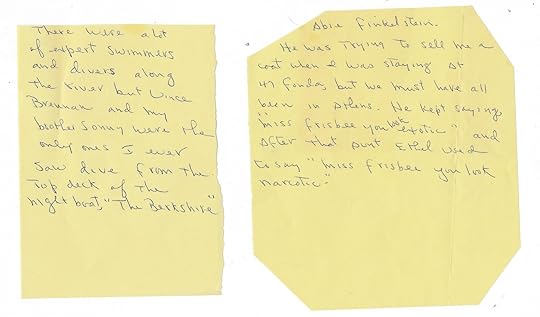 There were a lot
of expert swimmers
and divers along
the river but Vince
Brennan and my
brother Sonny were the
only ones I ever
saw dive from the
top deck of the
night boat, "The Berkshire"
Abie Finkelstein.
He was trying to sell me a
coat when I was staying at
47 Fonda, but we must have all
been in Athens. He kept saying,
"miss frisbee you look exotic" and
after that Aunt Ethel used
to say "miss frisbee you look
narcotic"